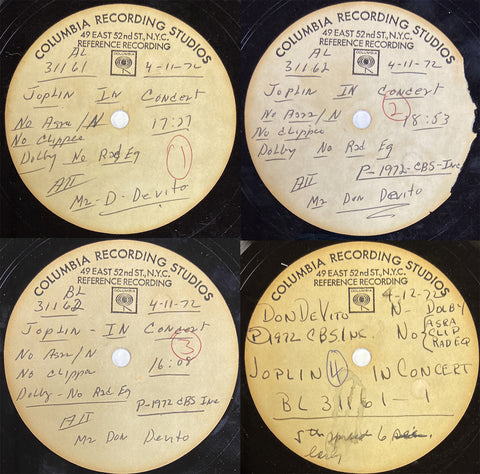 COLUMBIA RECORDING STUDIOS
49 EAST 52nd ST., N.Y.C.
REFERENCE RECORDING
AL
31161 4-11-72
Joplin IN Concert
No Asra/N 17:27
No Clipper
Dolby No Rad Eq
1
AII
Mr - D - Devito
COLUMBIA RECORDING STUDIOS
49 EAST 52nd ST., N.Y.C.
REFERENCE RECORDING
AL
31162 4-11-72
Joplin IN Concert
No Asra/N 2 18:53
No Clipper
Dolby No Rad Eq
P-1972-CBS-Inc
AII
Mr Don Devito
COLUMBIA RECORDING STUDIOS
49 EAST 52nd ST., N.Y.C.
REFERENCE RECORDING
BL
31162 4-11-72
Joplin - IN Concert
No Asra/N 3
No Clipper 16:08
Dolby - No Rad Eq
P-1972 CBS Inc
AII
Mr Don Devito
COLUMBIA RECORDING STUDIOS
49 EAST 52nd ST., N.Y.C.
REFERENCE RECORDING
4-12-72
DON DEVITO N- DOLBY
ASRA
P 1972 CBS INC. No CLIP
RAD EQ
JOPLIN 4 IN CONCERT
BL 31161-1
5th spread 6